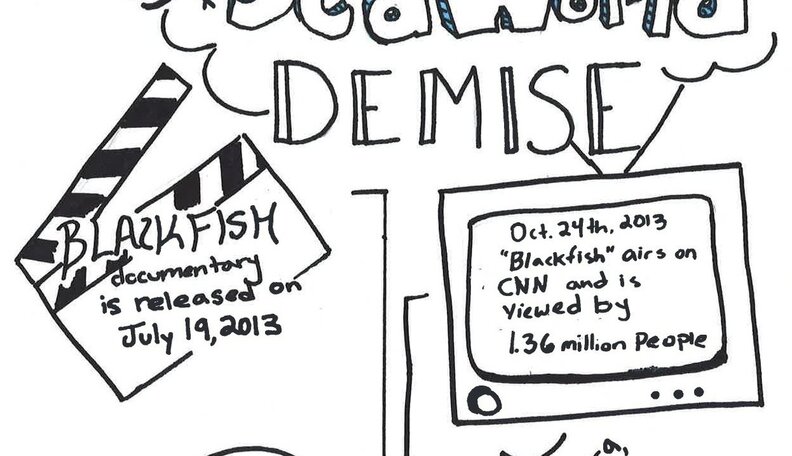 SeaWorld
DEMISE
BLACKFISH
documentary
is released on
July 19, 2013
Oct. 24th, 2013
"Blackfish" airs on
CNN and is
viewed by
1.36 million People